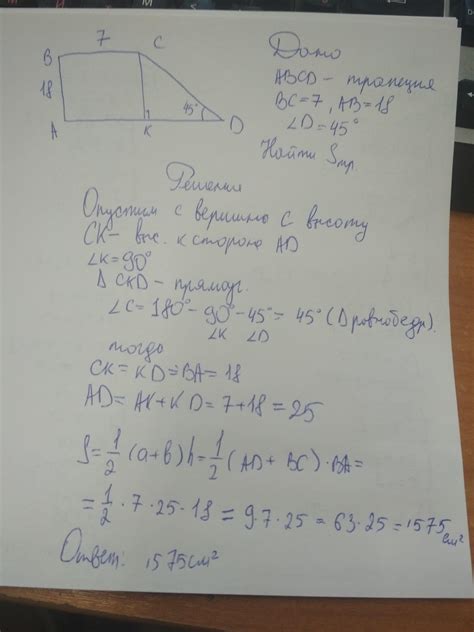 7
B C
18 45°
A K D
Дано
ABCD – трапеция
BC=7, AB=18
∠D=45°
Найти Sтр.
Решения
Опустим с вершино С высоту
CK – выс. к стороно AD
∠K=90°
Δ CKD – прямоуг.
∠C=180°-90°-45°= 45° (Δ ровнобедр).
∠K ∠D
тогдо
CK = KD = BA = 18
AD = AK + KD = 7+18 = 25
S=1/2 (a+b)h=1/2 (AD + BC)·BA=
=1/2 · 7 · 25 · 18 = 9·7·25 = 63·25 = 1575 см²
Ответ: 1575 см²